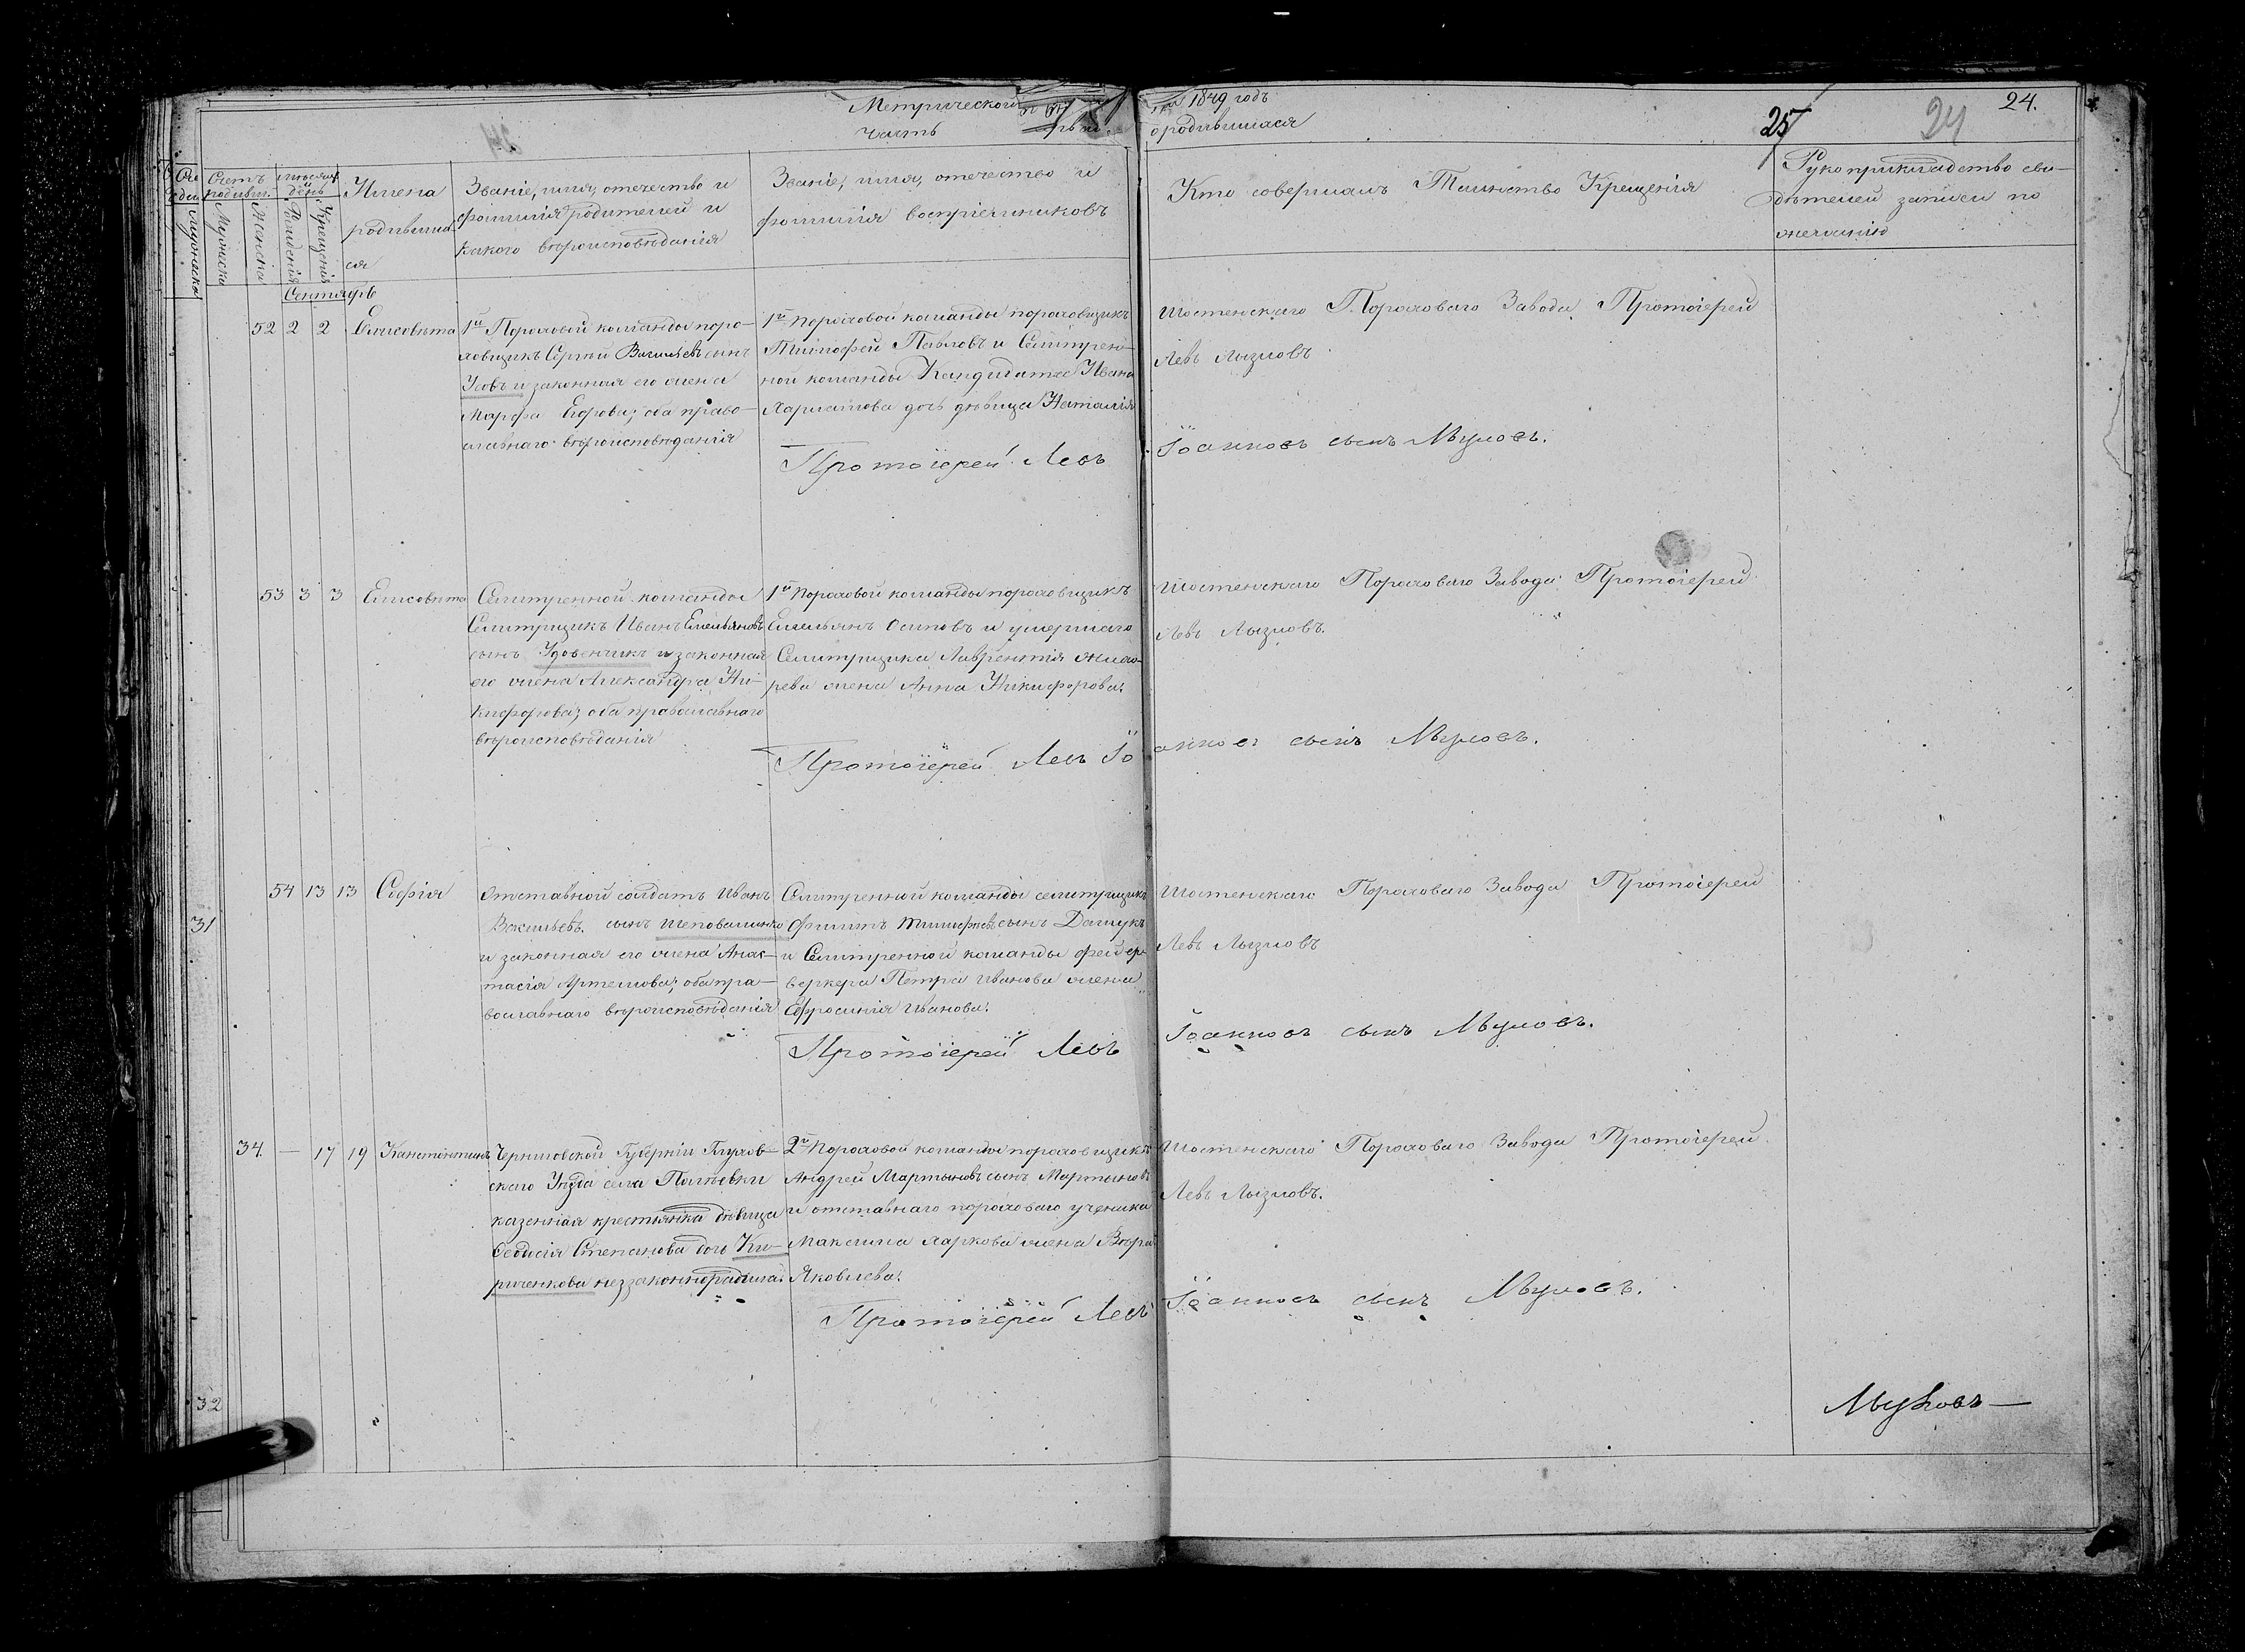 Метрической
на 1849 годъ
часть
о родившихся
25
24
24.
Счетъ родивш.
Мужска
Женска
Мѣсяцъ и день
Рожденія
Крещенія
Имена
родивших
ся
Званіе, имя, отечество и
фамилія родителей и
какого вѣроисповѣданія
Званіе, имя, отечество и
фамилія воспріемниковъ
Кто совершалъ Таинство Крещенія
Рукоприкладство сви-
дѣтелей записи по
желанію
Сентябрь
52 2 2 Елисавета
1й Пороховой команды поро-
ховщикъ Сергей Васильевъ сынъ
Усовъ и законная его жена
Марфа Егорова; оба право-
славнаго вѣроисповѣданія
1й Пороховой команды пороховщикъ
Тимофей Павловъ и Селитрен-
ной команды Кандидата Ивана
Харламова дочь дѣвица Наталія
Шостенскаго Пороховаго Завода Протоіерей
Левъ Лызловъ
Протоіерей Левъ Іоанновъ сынъ Лызловъ.
53 3 3 Елисавета
Селитренной команды
Селитрщикъ Иванъ Емельяновъ
сынъ Удовенчикъ и законная
его жена Александра Ни-
кифорова; оба православнаго
вѣроисповѣданія
1й Пороховой команды пороховщикъ
Емельянъ Осиповъ и умершаго
Селитрщика Лаврентія
рева жена Анна Никифорова.
Шостенскаго Пороховаго Завода Протоіерей
Левъ Лызловъ.
Протоіерей Левъ Іоанновъ сынъ Лызловъ.
31
54 13 13 Софія
Отставной солдатъ Иванъ
Васильевъ сынъ Шеповаленко
и законная его жена Анас-
тасія Артемова; оба пра-
вославнаго вѣроисповѣданія
Селитренной команды селитрщикъ
Филипъ Тимофѣевъ сынъ Дашукъ
и Селитренной команды фейер-
веркера Петра Иванова жена
Ефросинія Иванова.
Шостенскаго Пороховаго Завода Протоіерей
Левъ Лызловъ
Протоіерей Левъ Іоанновъ сынъ Лызловъ.
34. — 17 19 Канстантинъ
Черниговской Губерніи Глухов-
скаго Уѣзда села
казенная крестьянка дѣвица
Феодосія Степанова дочь Ки-
риченкова незаконнорадила.
2й Пороховой команды пороховщикъ
Андрей Мартыновъ сынъ Мартыновъ
и отставнаго пороховаго ученика
Максима Маркова жена Вѣра
Яковлева.
Шостенскаго Пороховаго Завода Протоіерей
Левъ Лызловъ.
Протоіерей Левъ Іоанновъ сынъ Лызловъ.
32